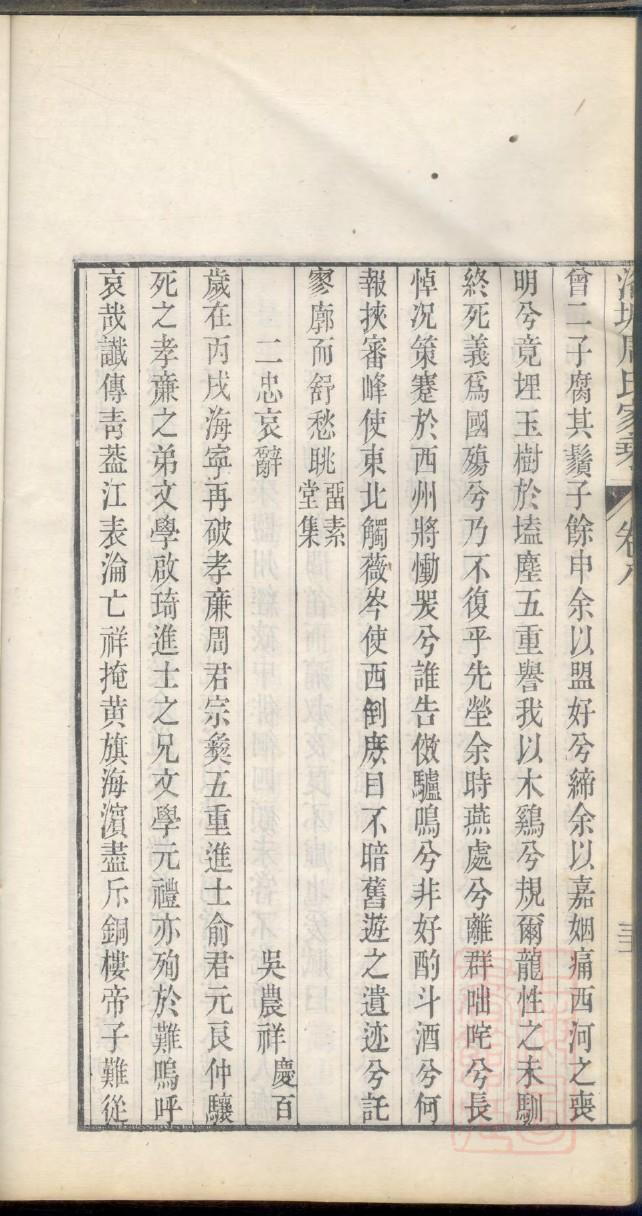 洛塘周氏家乘 卷八
曾二子腐其鬚子餘申余以盟好兮締余以嘉姻痛西河之喪
明兮竟埋玉樹於壒塵五重譽我以木鷄兮規爾龍性之未馴
終死義爲國殤兮乃不復乎先塋余時燕處兮離群咄咤兮長
悼况策蹇於西州將慟哭兮誰告倣驢鳴兮非好酌斗酒兮何
報挾審峰使東北觸薇岑使西倒庶目不暗舊遊之遺迹兮託
寥廓而舒愁眺畱素堂集
二忠哀辭 吳農祥慶百
歲在丙戌海寧再破孝亷周君宗彝五重進士俞君元良仲驤
死之孝亷之弟文學啟琦進士之兄文學元禮亦殉於難嗚呼
哀哉讖傳靑葢江表淪亡祥掩黄旗海濵盡斥銅樓帝子難從